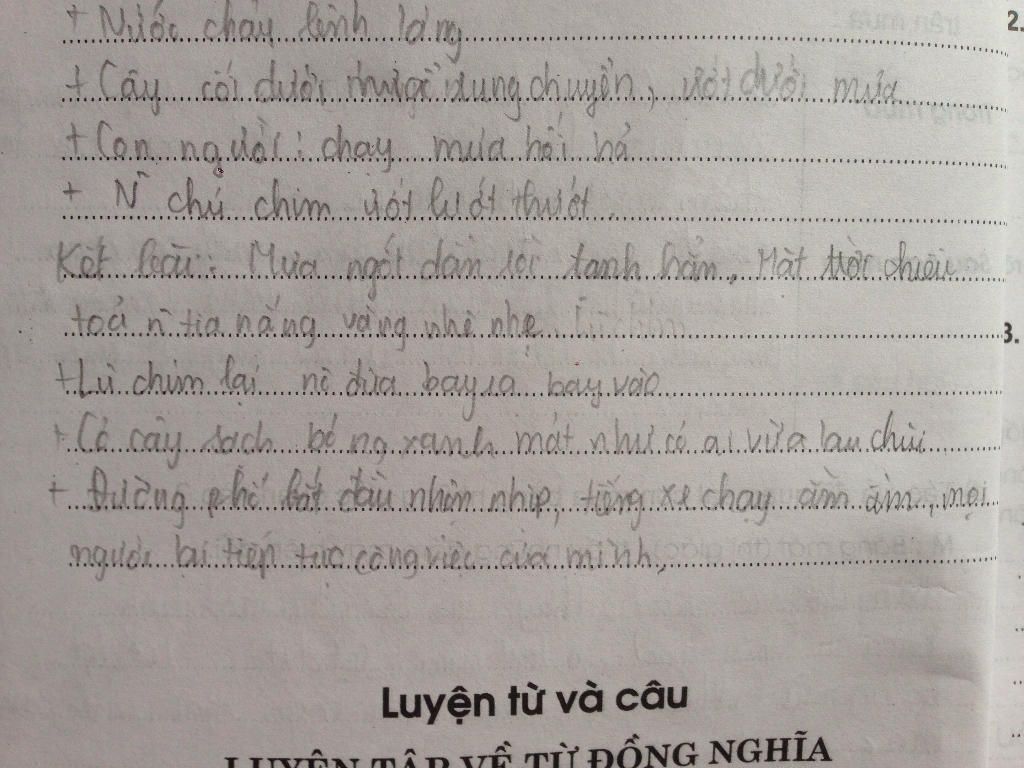 + Nước chảy lênh láng
+ Cây cối dưới mưa rung chuyển, ướt dưới mưa
+ Con người: chạy mưa hối hả
+ N~ chú chim ướt lướt thướt.
Kết bài: Mưa ngớt dần rồi tạnh hẳn. Mặt trời chiếu
toả n~ tia nắng vàng nhè nhẹ
+ Lũ chim lại nô đùa bay ra bay vào
+ Cỏ cây sạch bóng xanh mát như có ai vừa lau chùi
+ Đường phố bắt đầu nhộn nhịp, tiếng xe chạy ầm ầm, mọi
người lại tiếp tục công việc của mình,
Luyện từ và câu
LUYỆN TẬP VỀ TỪ ĐỒNG NGHĨA
2.
3.